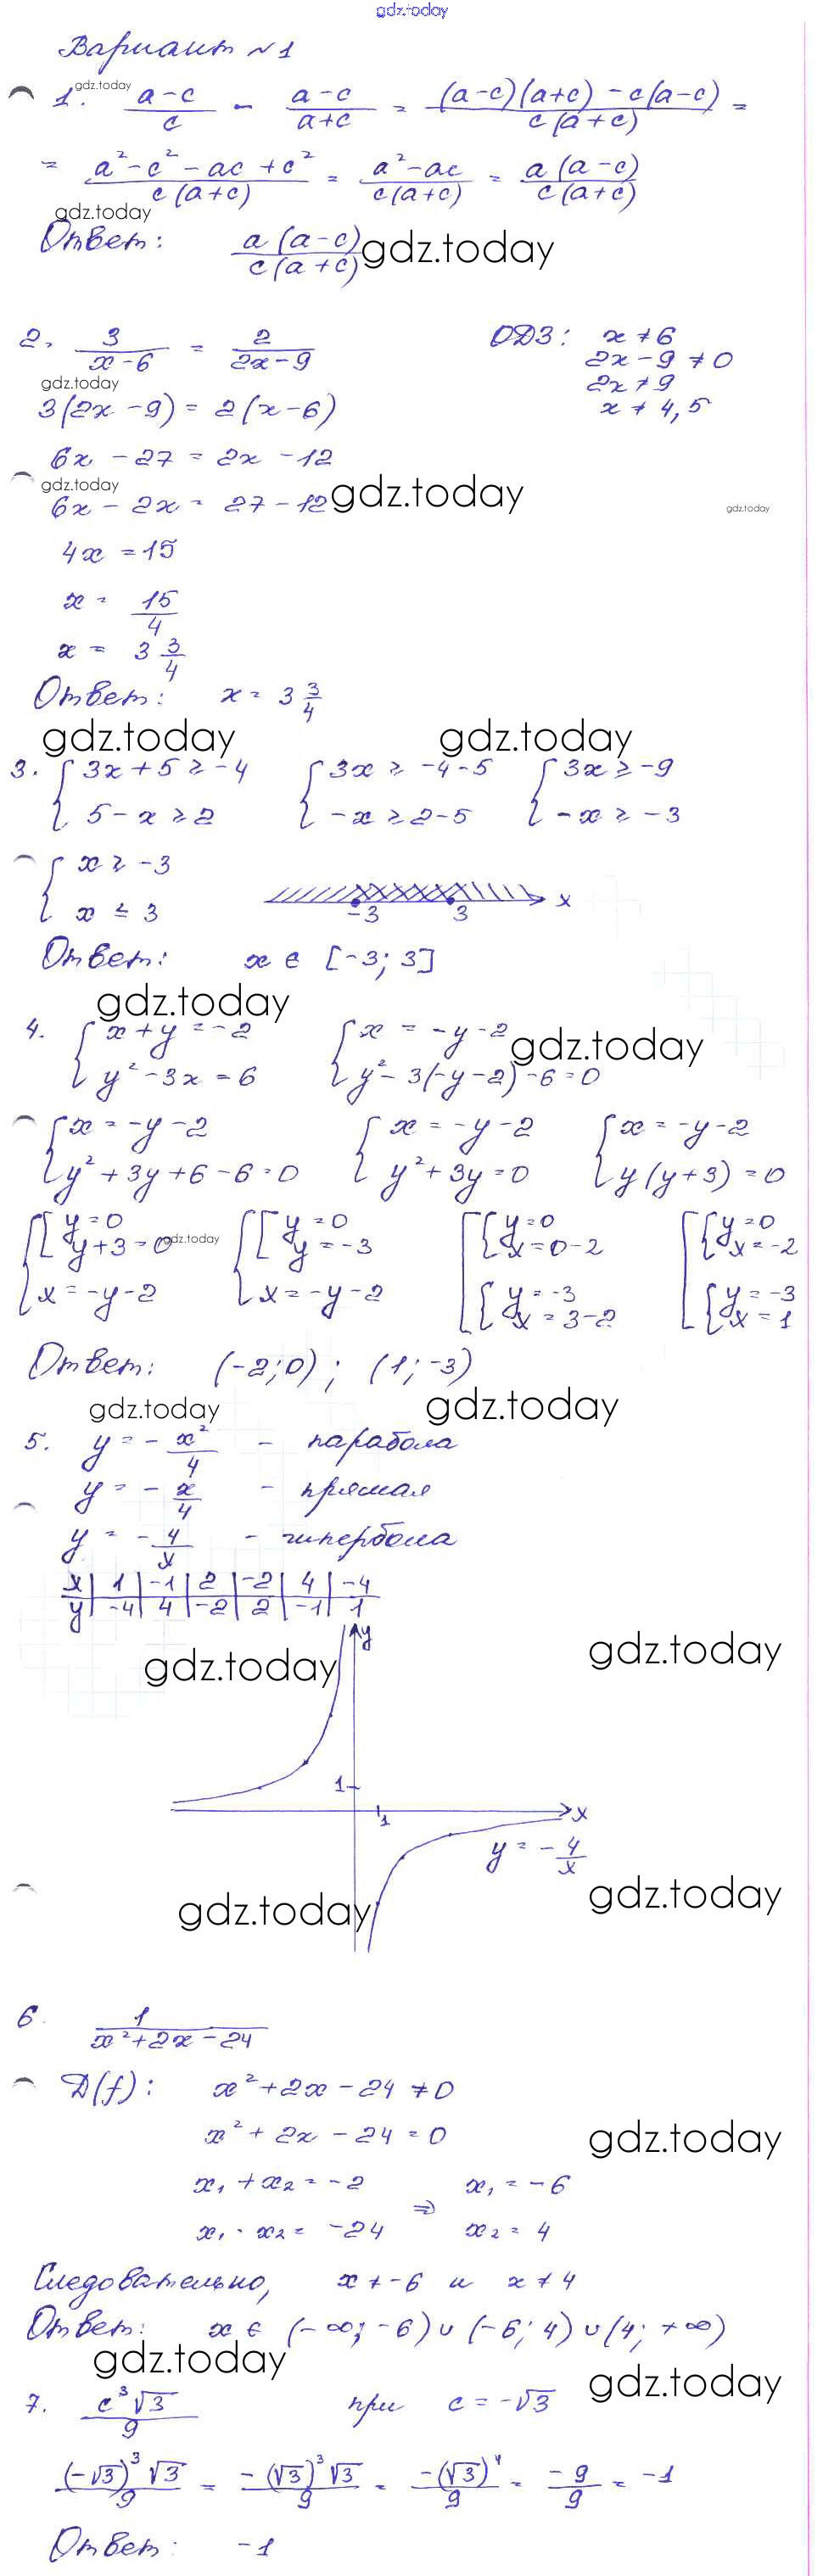 gdz.today
Вариант №1
gdz.today
1. (a-c)/c - (a-c)/(a+c) = ((a-c)(a+c) - c(a-c))/(c(a+c)) =
= (a²-c²-ac+c²)/(c(a+c)) = (a²-ac)/(c(a+c)) = (a(a-c))/(c(a+c))
gdz.today
Ответ: (a(a-c))/(c(a+c)) gdz.today
2. 3/(x-6) = 2/(2x-9) ОДЗ: x≠6
2x-9≠0
gdz.today 2x≠9
3(2x-9) = 2(x-6) x≠4,5
6x-27 = 2x-12
gdz.today
6x-2x = 27-12 gdz.today gdz.today
4x = 15
x = 15/4
x = 3 3/4
Ответ: x = 3 3/4
gdz.today gdz.today
3. { 3x+5 ≥ -4 { 3x ≥ -4-5 { 3x ≥ -9
5-x ≥ 2 -x ≥ 2-5 -x ≥ -3
{ x ≥ -3
x ≤ 3 -3 3 x
Ответ: x ∈ [-3; 3]
gdz.today
4. { x+y = -2 { x = -y-2 gdz.today
y²-3x = 6 y²-3(-y-2)-6=0
{ x = -y-2 { x = -y-2 { x = -y-2
y²+3y+6-6=0 y²+3y=0 y(y+3)=0
{ [ y=0 { [ y=0 [ { y=0 [ { y=0
y+3=0 gdz.today y=-3 x=0-2 x=-2
x=-y-2 x=-y-2 { y=-3 { y=-3
x=3-2 x=1
Ответ: (-2;0); (1;-3)
gdz.today gdz.today
5. y = -x²/4 - парабола
y = -x/4 - прямая
y = -4/x - гипербола
x | 1 | -1 | 2 | -2 | 4 | -4
y | -4 | 4 | -2 | 2 | -1 | 1
y
gdz.today gdz.today
1
1 x
y = -4/x
gdz.today gdz.today
6. 1/(x²+2x-24)
D(f): x²+2x-24≠0
x²+2x-24=0 gdz.today
x₁+x₂=-2 ⇒ x₁=-6
x₁·x₂=-24 x₂=4
Следовательно, x≠-6 и x≠4
Ответ: x ∈ (-∞; -6)∪(-6; 4)∪(4; +∞)
gdz.today gdz.today
7. c³√3/9 при c = -√3
(-√3)³√3/9 = -(√3)³√3/9 = -(√3)⁴/9 = -9/9 = -1
Ответ: -1